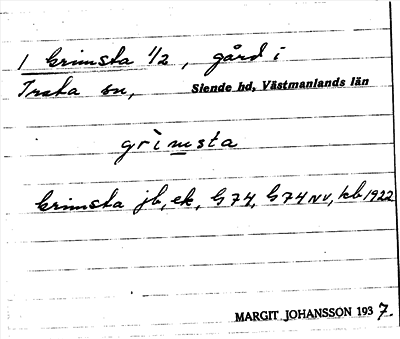 1 Grimsta 1/2, gård i
Irsta sn, Siende hd, Västmanlands län
grìmsta
Grimsta jb, ek, G 74, G 74 NV, kb 1922
MARGIT JOHANSSON 1937.